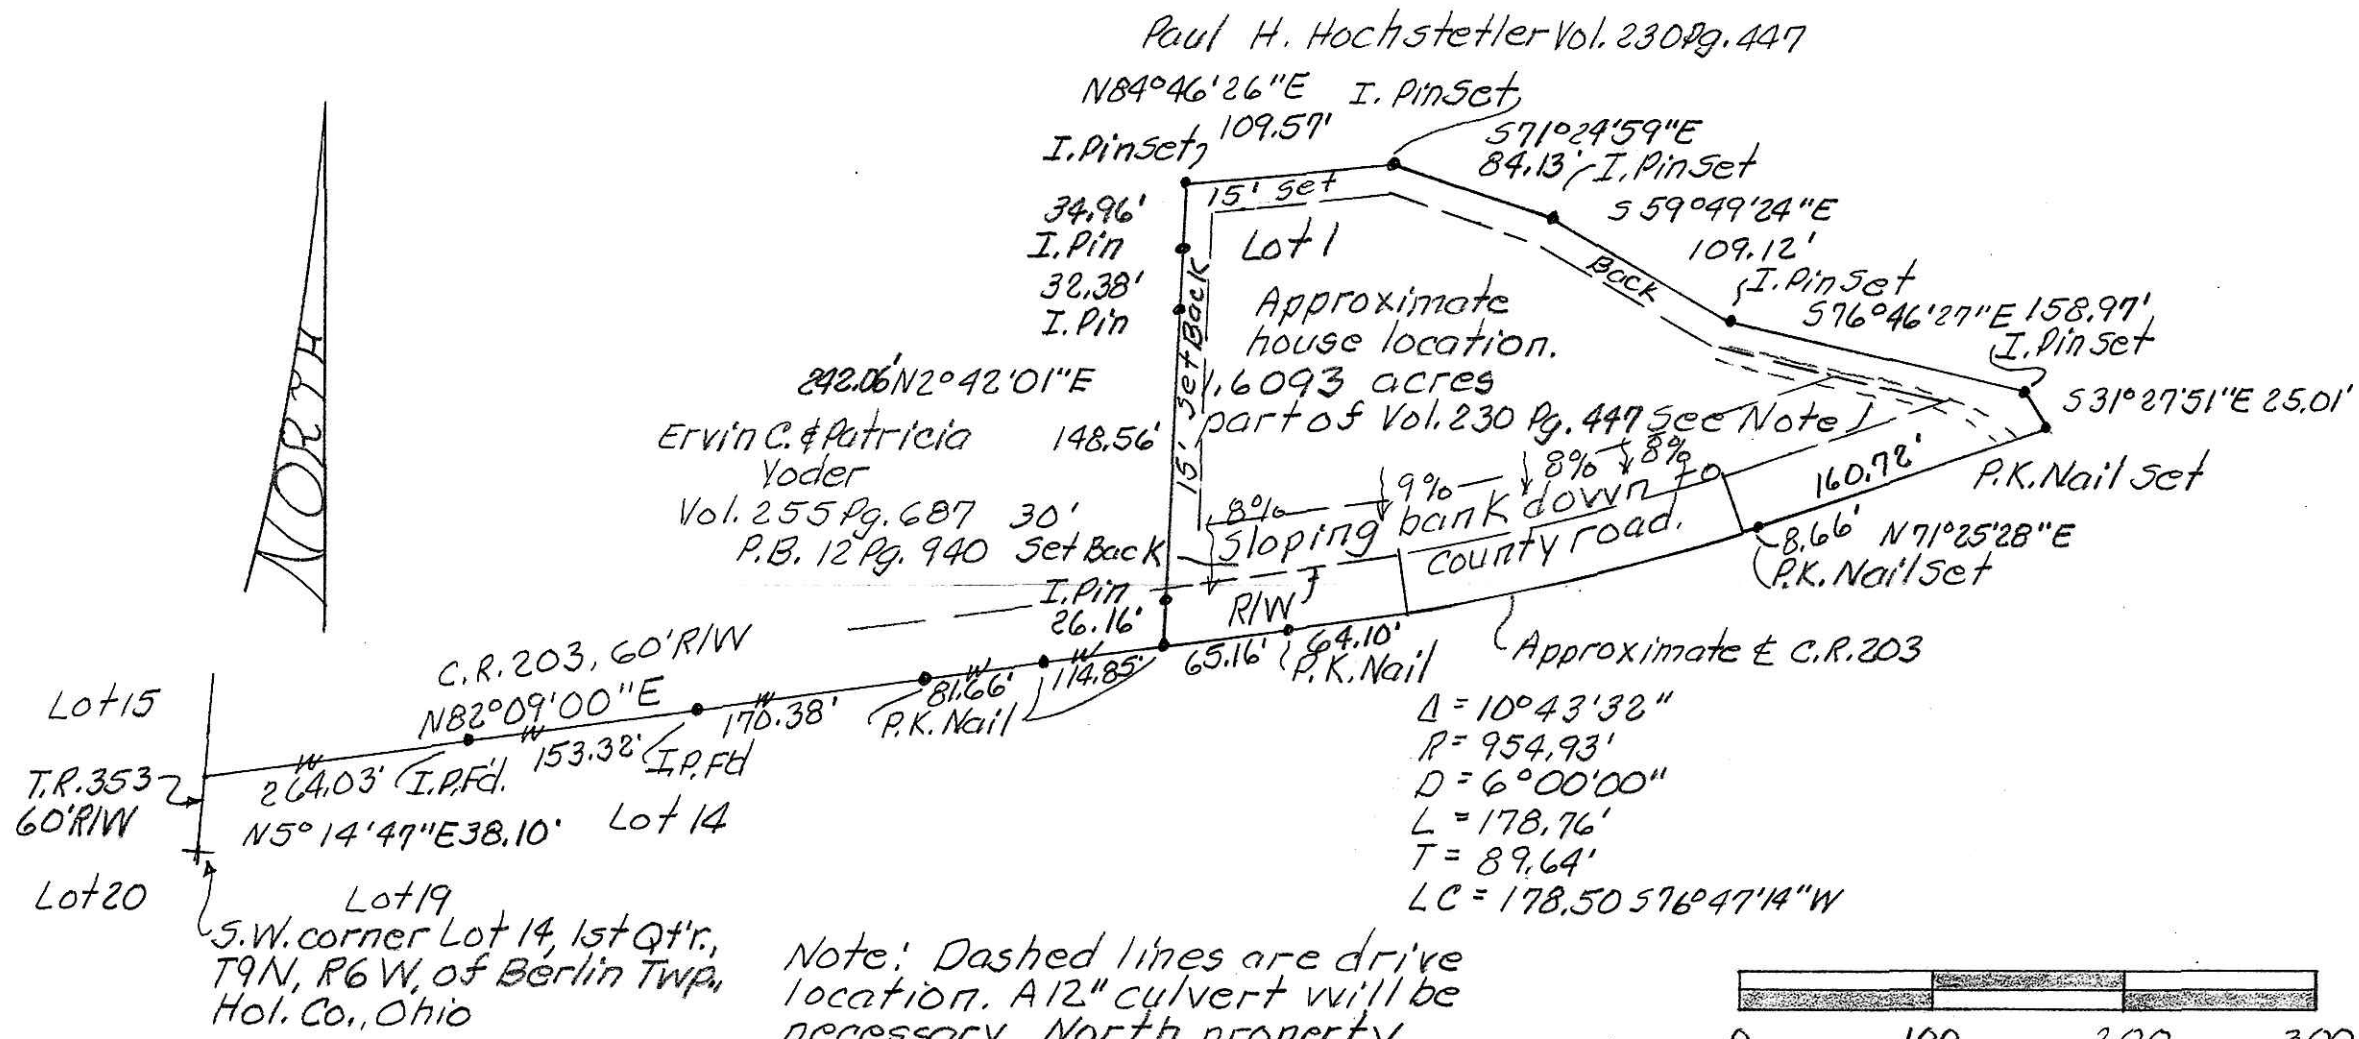 Paul H. Hochstetler Vol. 230 Pg. 447
N84°46'26"E
I. Pin Set
109.57'
I. Pin Set
S71°24'59"E
84.13'
I. Pin Set
S 59°49'24"E
109.12'
I. Pin Set
S76°46'27"E 158.97'
I. Pin Set
S31°27'51"E 25.01'
34.96'
I. Pin
32.38'
I. Pin
15' Set
Back
Lot 1
15' Set Back
Approximate
house location.
1.6093 acres
part of Vol. 230 Pg. 447 See Note
242.06' N2°42'01"E
Ervin C. & Patricia
Yoder
148.56'
Vol. 255 Pg. 687
P.B. 12 Pg. 940
30'
Set Back
I. Pin
26.16'
8% 9% 8% 8%
Sloping bank down to
county road.
160.72'
P.K. Nail Set
8.66' N71°25'28"E
P.K. Nail Set
R/W
65.16'
64.10'
P.K. Nail
Approximate ℄ C.R. 203
NORTH
C.R. 203, 60' R/W
N82°09'00"E
W W W W W
264.03'
I.P. Fd.
153.32'
I.P. Fd
170.38'
81.66'
P.K. Nail
114.85'
Lot 15
T.R. 353
60' R/W
N5°14'47"E 38.10'
Lot 14
Lot 20
Lot 19
S.W. corner Lot 14, 1st Qt'r.,
T9N, R6W, of Berlin Twp.,
Hol. Co., Ohio
Δ = 10°43'32"
R = 954.93'
D = 6°00'00"
L = 178.76'
T = 89.64'
LC = 178.50 S76°47'14"W
Note: Dashed lines are drive
location. A 12" culvert will be
necessary. North property
0 100 200 300